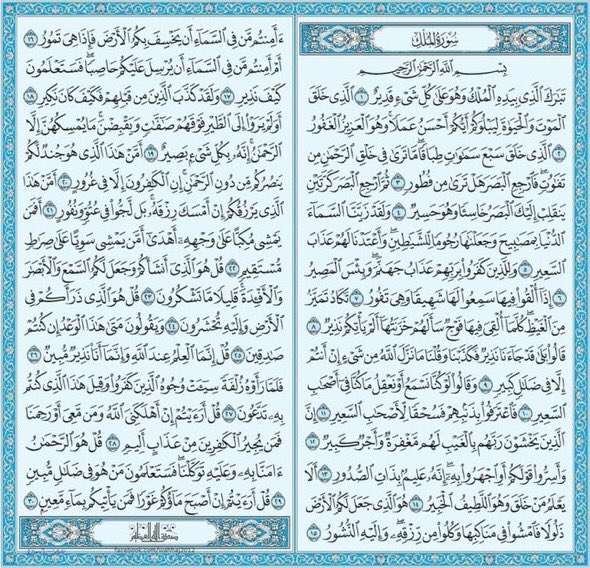 سُورَةُ المُلْكِ
بِسْمِ اللَّهِ الرَّحْمَٰنِ الرَّحِيمِ
تَبَارَكَ الَّذِي بِيَدِهِ الْمُلْكُ وَهُوَ عَلَىٰ كُلِّ شَيْءٍ قَدِيرٌ ١ الَّذِي خَلَقَ
الْمَوْتَ وَالْحَيَاةَ لِيَبْلُوَكُمْ أَيُّكُمْ أَحْسَنُ عَمَلًا وَهُوَ الْعَزِيزُ الْغَفُورُ
٢ الَّذِي خَلَقَ سَبْعَ سَمَاوَاتٍ طِبَاقًا مَا تَرَىٰ فِي خَلْقِ الرَّحْمَٰنِ مِن
تَفَاوُتٍ فَارْجِعِ الْبَصَرَ هَلْ تَرَىٰ مِن فُطُورٍ ٣ ثُمَّ ارْجِعِ الْبَصَرَ كَرَّتَيْنِ
يَنقَلِبْ إِلَيْكَ الْبَصَرُ خَاسِئًا وَهُوَ حَسِيرٌ ٤ وَلَقَدْ زَيَّنَّا السَّمَاءَ
الدُّنْيَا بِمَصَابِيحَ وَجَعَلْنَاهَا رُجُومًا لِّلشَّيَاطِينِ وَأَعْتَدْنَا لَهُمْ عَذَابَ
السَّعِيرِ ٥ وَلِلَّذِينَ كَفَرُوا بِرَبِّهِمْ عَذَابُ جَهَنَّمَ وَبِئْسَ الْمَصِيرُ
٦ إِذَا أُلْقُوا فِيهَا سَمِعُوا لَهَا شَهِيقًا وَهِيَ تَفُورُ ٧ تَكَادُ تَمَيَّزُ
مِنَ الْغَيْظِ كُلَّمَا أُلْقِيَ فِيهَا فَوْجٌ سَأَلَهُمْ خَزَنَتُهَا أَلَمْ يَأْتِكُمْ نَذِيرٌ ٨
قَالُوا بَلَىٰ قَدْ جَاءَنَا نَذِيرٌ فَكَذَّبْنَا وَقُلْنَا مَا نَزَّلَ اللَّهُ مِن شَيْءٍ إِنْ أَنتُمْ
إِلَّا فِي ضَلَالٍ كَبِيرٍ ٩ وَقَالُوا لَوْ كُنَّا نَسْمَعُ أَوْ نَعْقِلُ مَا كُنَّا فِي أَصْحَابِ
السَّعِيرِ ١٠ فَاعْتَرَفُوا بِذَنبِهِمْ فَسُحْقًا لِّأَصْحَابِ السَّعِيرِ ١١ إِنَّ
الَّذِينَ يَخْشَوْنَ رَبَّهُم بِالْغَيْبِ لَهُم مَّغْفِرَةٌ وَأَجْرٌ كَبِيرٌ ١٢
وَأَسِرُّوا قَوْلَكُمْ أَوِ اجْهَرُوا بِهِ إِنَّهُ عَلِيمٌ بِذَاتِ الصُّدُورِ ١٣ أَلَا
يَعْلَمُ مَنْ خَلَقَ وَهُوَ اللَّطِيفُ الْخَبِيرُ ١٤ هُوَ الَّذِي جَعَلَ لَكُمُ الْأَرْضَ
ذَلُولًا فَامْشُوا فِي مَنَاكِبِهَا وَكُلُوا مِن رِّزْقِهِ وَإِلَيْهِ النُّشُورُ ١٥
ءَأَمِنتُم مَّن فِي السَّمَاءِ أَن يَخْسِفَ بِكُمُ الْأَرْضَ فَإِذَا هِيَ تَمُورُ ١٦
أَمْ أَمِنتُم مَّن فِي السَّمَاءِ أَن يُرْسِلَ عَلَيْكُمْ حَاصِبًا فَسَتَعْلَمُونَ
كَيْفَ نَذِيرِ ١٧ وَلَقَدْ كَذَّبَ الَّذِينَ مِن قَبْلِهِمْ فَكَيْفَ كَانَ نَكِيرِ ١٨
أَوَلَمْ يَرَوْا إِلَى الطَّيْرِ فَوْقَهُمْ صَافَّاتٍ وَيَقْبِضْنَ مَا يُمْسِكُهُنَّ إِلَّا
الرَّحْمَٰنُ إِنَّهُ بِكُلِّ شَيْءٍ بَصِيرٌ ١٩ أَمَّنْ هَٰذَا الَّذِي هُوَ جُندٌ لَّكُمْ
يَنصُرُكُم مِّن دُونِ الرَّحْمَٰنِ إِنِ الْكَافِرُونَ إِلَّا فِي غُرُورٍ ٢٠ أَمَّنْ هَٰذَا
الَّذِي يَرْزُقُكُمْ إِنْ أَمْسَكَ رِزْقَهُ بَل لَّجُّوا فِي عُتُوٍّ وَنُفُورٍ ٢١ أَفَمَن
يَمْشِي مُكِبًّا عَلَىٰ وَجْهِهِ أَهْدَىٰ أَمَّن يَمْشِي سَوِيًّا عَلَىٰ صِرَاطٍ
مُّسْتَقِيمٍ ٢٢ قُلْ هُوَ الَّذِي أَنشَأَكُمْ وَجَعَلَ لَكُمُ السَّمْعَ وَالْأَبْصَارَ
وَالْأَفْئِدَةَ قَلِيلًا مَّا تَشْكُرُونَ ٢٣ قُلْ هُوَ الَّذِي ذَرَأَكُمْ فِي
الْأَرْضِ وَإِلَيْهِ تُحْشَرُونَ ٢٤ وَيَقُولُونَ مَتَىٰ هَٰذَا الْوَعْدُ إِن كُنتُمْ
صَادِقِينَ ٢٥ قُلْ إِنَّمَا الْعِلْمُ عِندَ اللَّهِ وَإِنَّمَا أَنَا نَذِيرٌ مُّبِينٌ ٢٦
فَلَمَّا رَأَوْهُ زُلْفَةً سِيئَتْ وُجُوهُ الَّذِينَ كَفَرُوا وَقِيلَ هَٰذَا الَّذِي كُنتُم
بِهِ تَدَّعُونَ ٢٧ قُلْ أَرَأَيْتُمْ إِنْ أَهْلَكَنِيَ اللَّهُ وَمَن مَّعِيَ أَوْ رَحِمَنَا
فَمَن يُجِيرُ الْكَافِرِينَ مِنْ عَذَابٍ أَلِيمٍ ٢٨ قُلْ هُوَ الرَّحْمَٰنُ
ءَامَنَّا بِهِ وَعَلَيْهِ تَوَكَّلْنَا فَسَتَعْلَمُونَ مَنْ هُوَ فِي ضَلَالٍ مُّبِينٍ
٢٩ قُلْ أَرَأَيْتُمْ إِنْ أَصْبَحَ مَاؤُكُمْ غَوْرًا فَمَن يَأْتِيكُم بِمَاءٍ مَّعِينٍ ٣٠